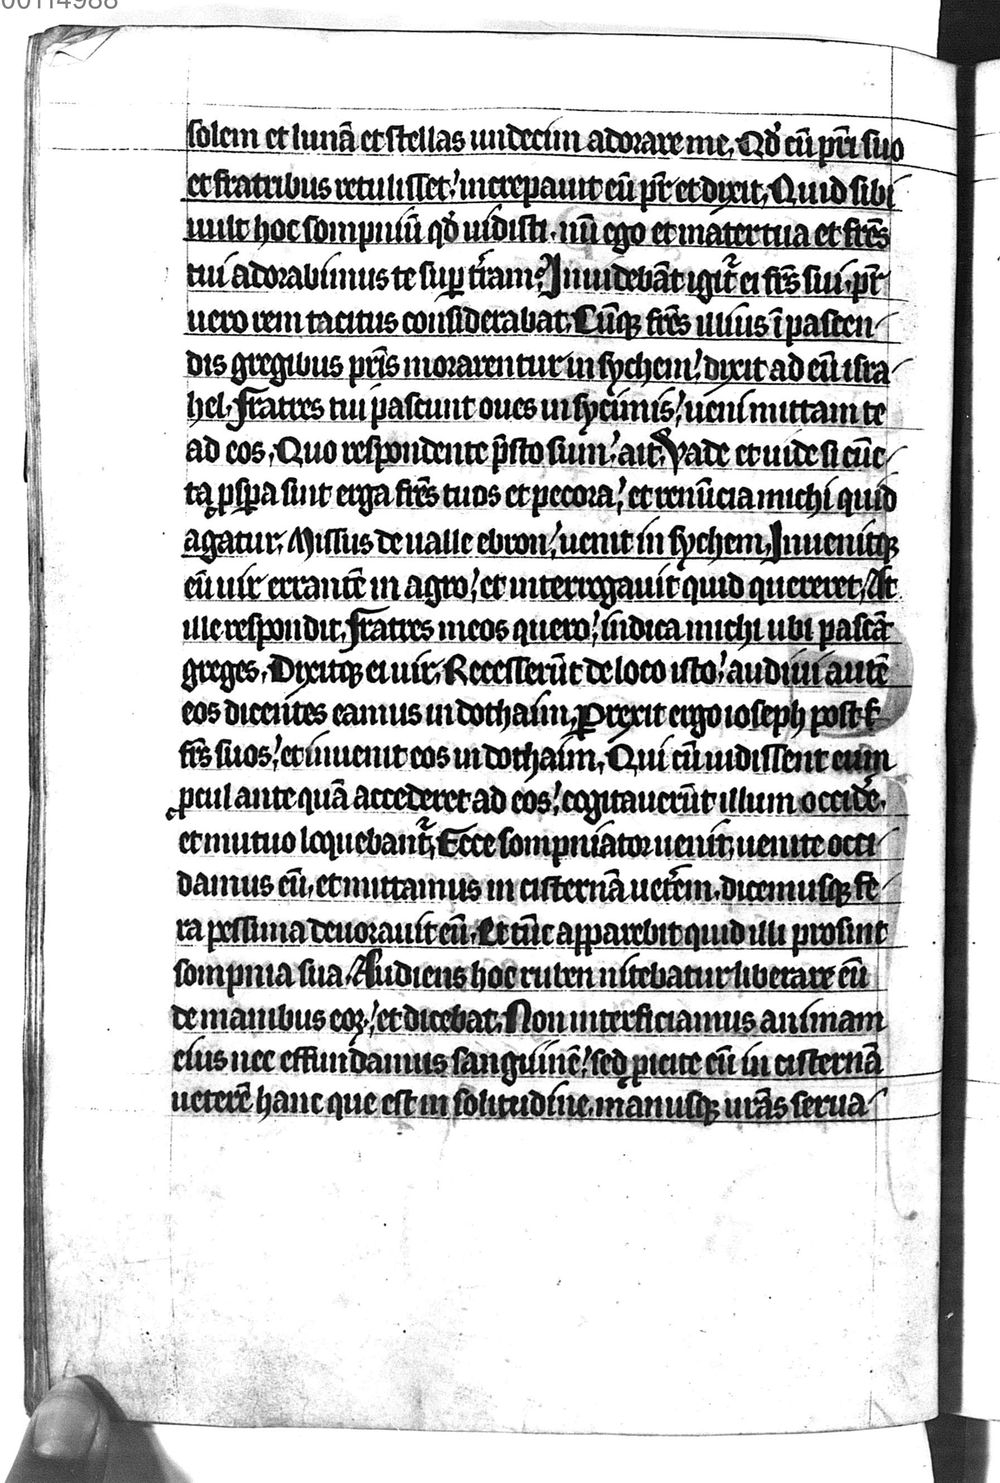 00114988
solem et lunā et stellas undecim adorare me. Qd̕ cū pr̄i suo
et fratribus retulisset: increpauit eū pr̄ et dixit. Quid sibi
uult hoc sompniū qd̕ uidisti. nū ego et mater tua et fr̄es
tui adorabimus te suꝑ t̄ram? Inuidebāt igit᷑ ei fr̄s sui. pr̄
uero rem tacitus considerabat. Cūq; fr̄es illius ī pascen
dis gregibus pr̄is morarentur in sychem: dixit ad eū isra
hel. Fratres tui pascunt oues in sycimis: ueni mittam te
ad eos. Quo respondente p̄sto sum: ait. Vade et uide si cūc
ta ꝓspa sint erga fr̄es tuos et pecora: et renūcia michi quid
agatur. Missus de ualle ebron: uenit in sychem. Inuenitq;
eū uir errantē in agro: et interrogauit quid quereret. At
ille respondit. Fratres meos quero: indica michi ubi pascāt
greges. Dixitq; ei uir. Recesserūt de loco isto: audiui autē
eos dicentes eamus in dothaim. Perrexit ergo ioseph post f
fr̄s suos: et inuenit eos in dothaim. Qui cū uidissent eum
ꝓcul ante quā accederet ad eos: cogitauerūt illum occidē.
et mutuo loquebant᷑. Ecce sompniator uenit: uenite occi
damus eū. et mittamus in cisternā uet̄em. dicemusq; fe
ra pessima deuorauit eū. Et tūc apparebit quid illi prosint
sompnia sua. Audiens hoc ruben nitebatur liberare eū
de manibus eoꝝ: et dicebat. Non interficiamus animam
eius nec effundamus sanguinē: sed ꝓicite eū in cisternā
ueterē hanc que est in solitudine. manusq; ur̄as serua